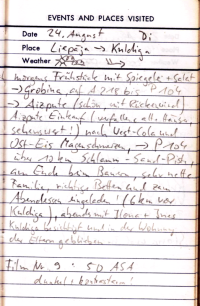 EVENTS AND PLACES VISITED
Date 24. August Di
Place Liepāja → Kuldīga
Weather
morgens Frühstück mit Spiegelei + Salat
→ Grobiņa, auf A218 bis P104
→ Aizpute (schön mit Rückenwind)
Aizpute Einkauf (verfallen, alte Häuser,
sehenswert!) nach West-Cola und
Ost-Eis Magenschmerzen, → P104
über 10 km Schlamm-Sand-Piste,
am Ende beim Bauern, sehr nette
Familie, richtige Betten und zum
Abendessen eingeladen! (6 km vor
Kuldīga), abends mit Ilona + Ines
Kuldīga besichtigt und in der Wohnung
der Eltern geblieben.
Film Nr. 9 : 50 ASA
dunkel + kontrastarm!